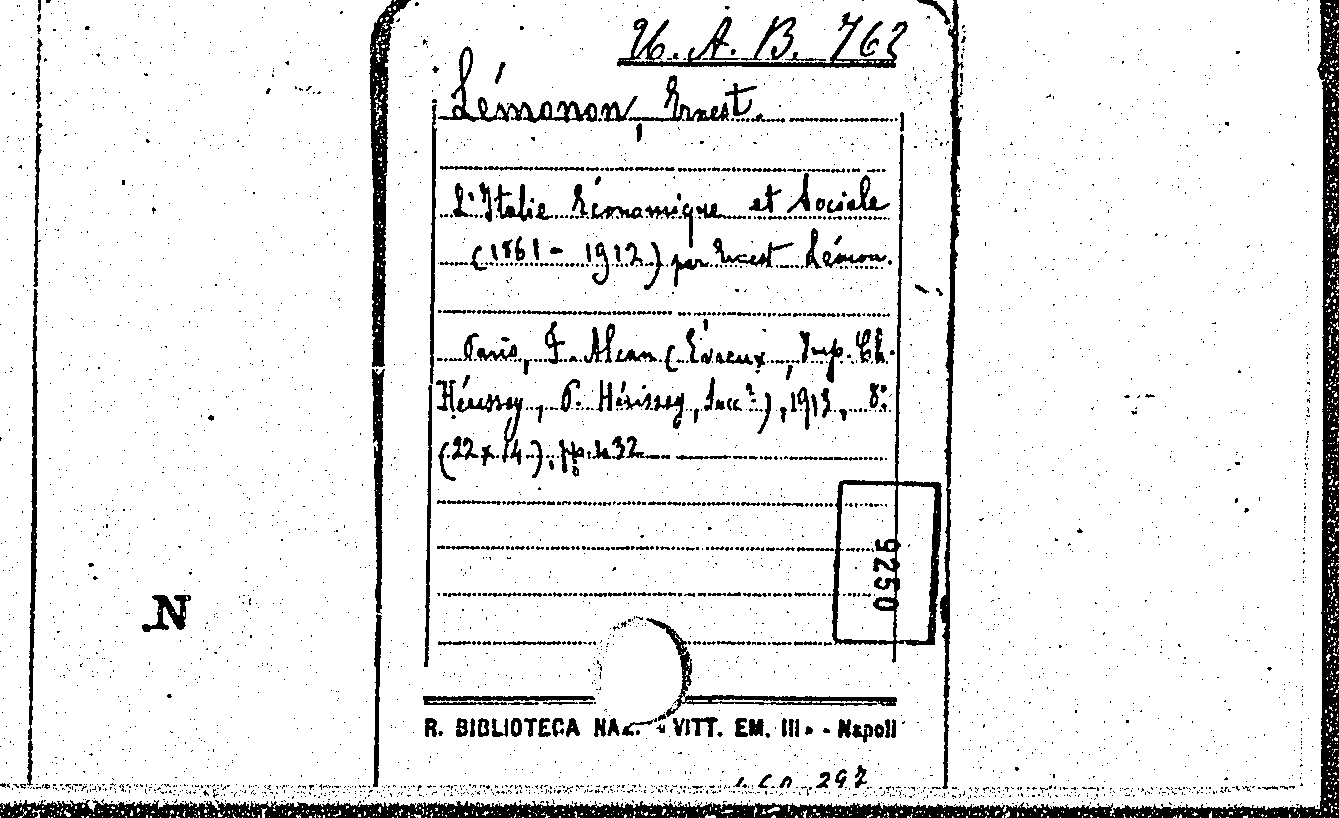 U. A. B. 762
Lémonon, Ernest.
L'Italie Économique et Sociale
(1861 - 1912) par Ernest Lémon.
Paris, F. Alcan (Évreux, Imp. Ch.
Hérissey, P. Hérissey, Succ.r), 1913, 8.º
(22 x 14), pp. 432
9250
.N
R. BIBLIOTECA NAZ. « VITT. EM. III » - Napoli
292